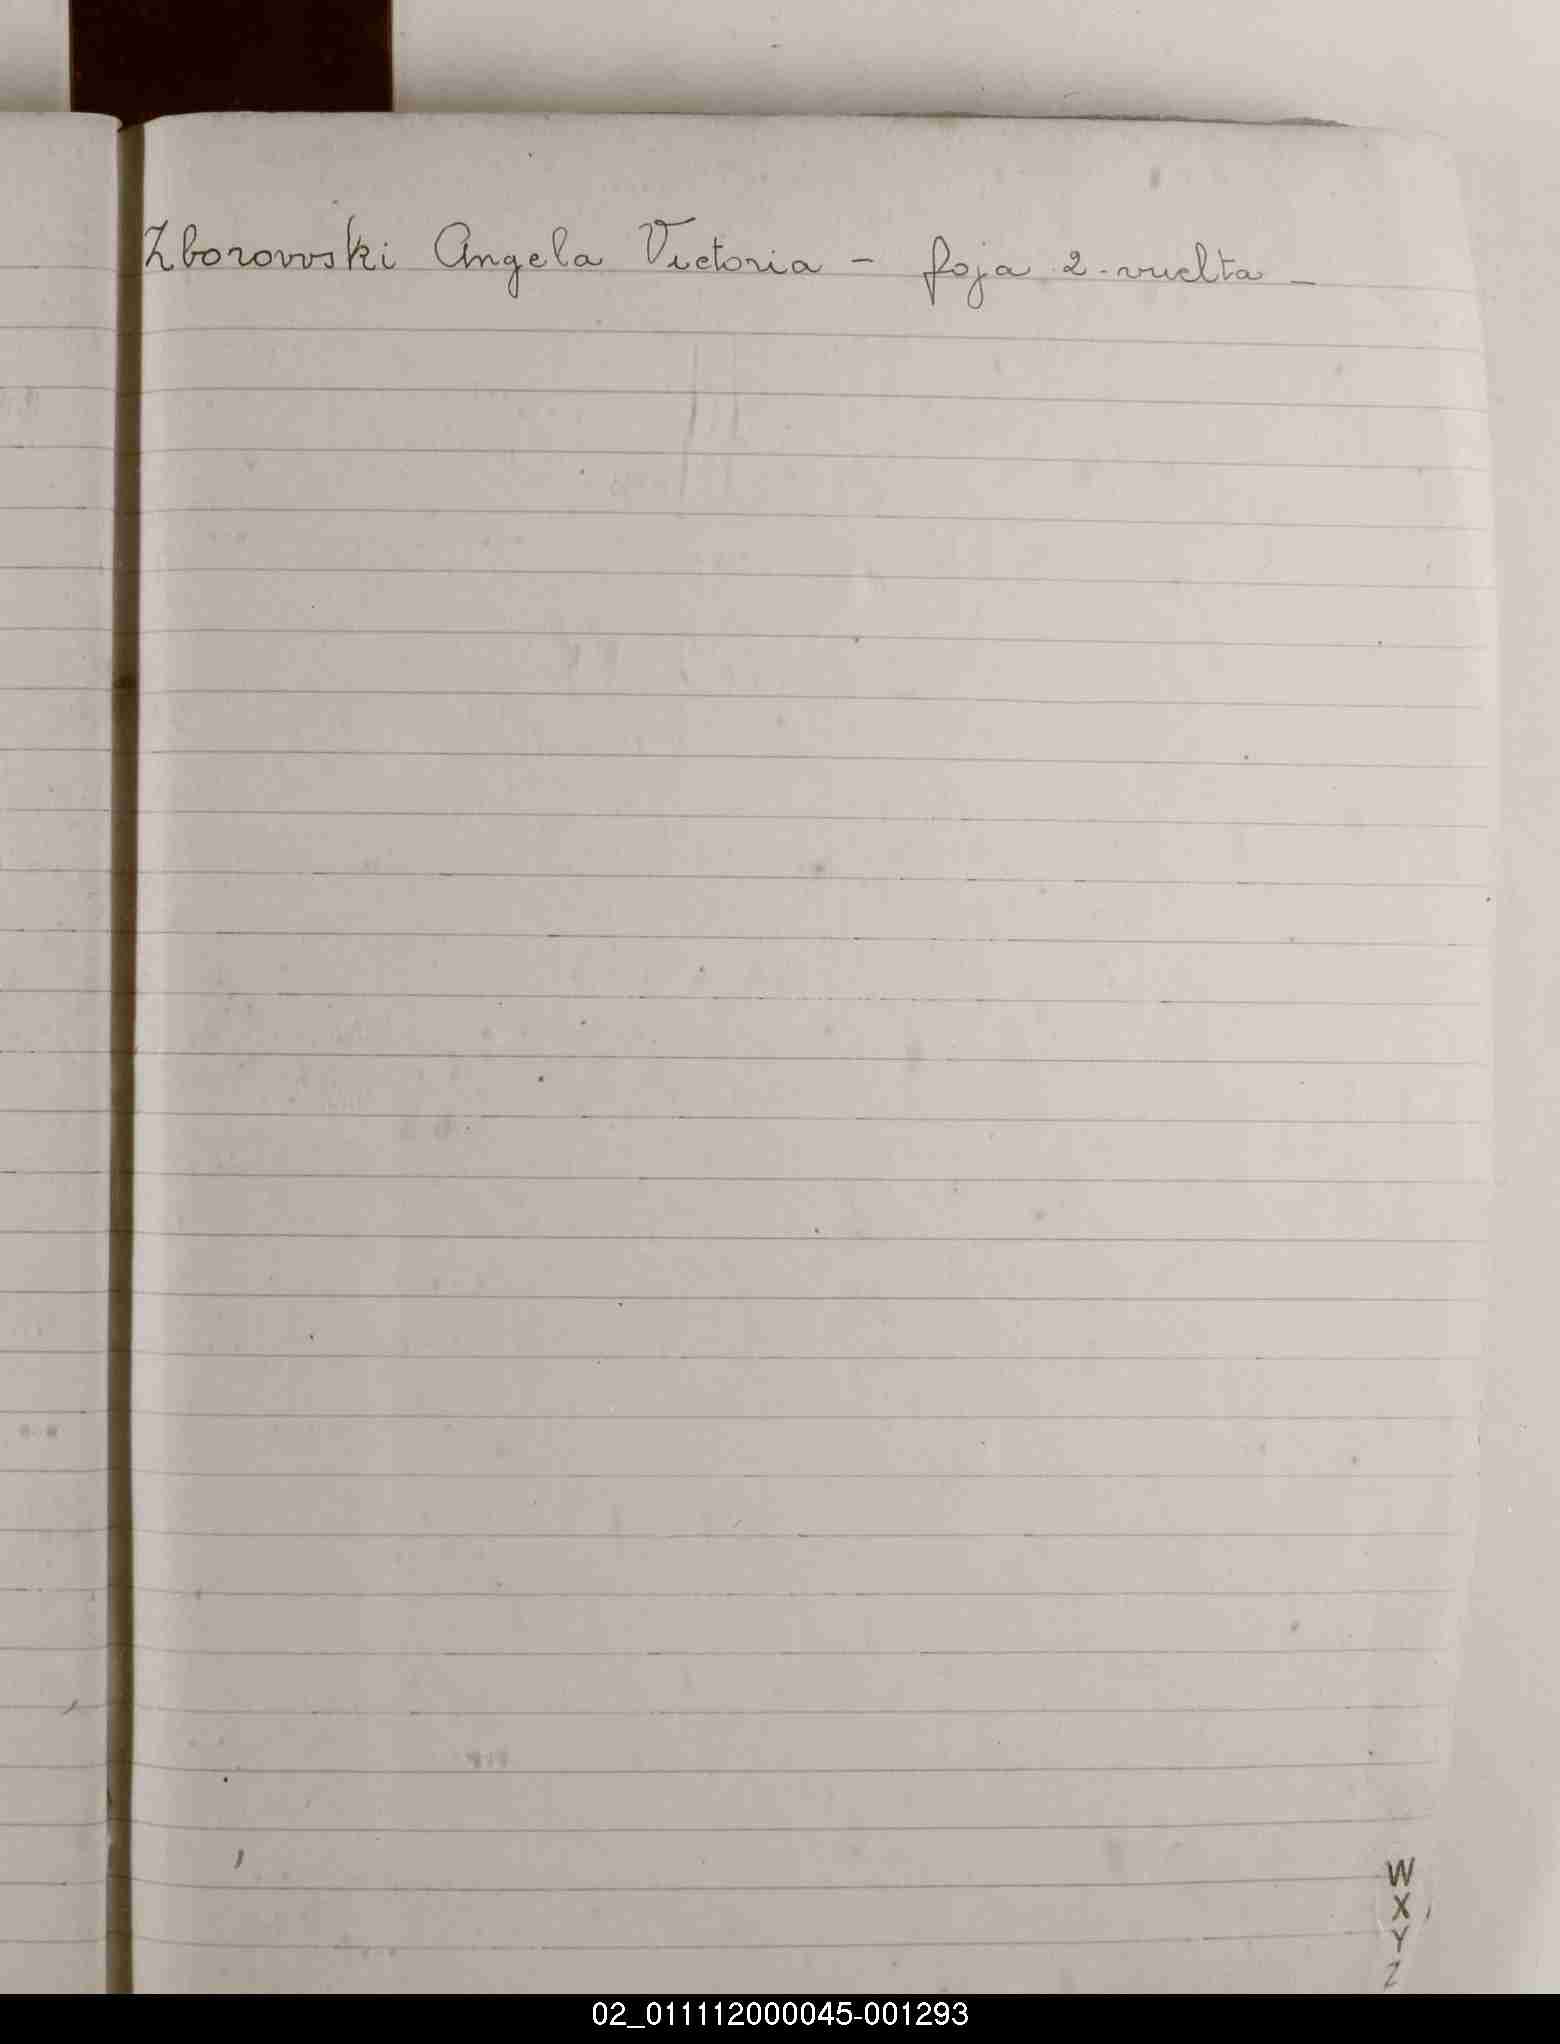 Zborovvski Angela Victoria - foja 2. vuelta -
W
X
Y
Z
02_011112000045-001293